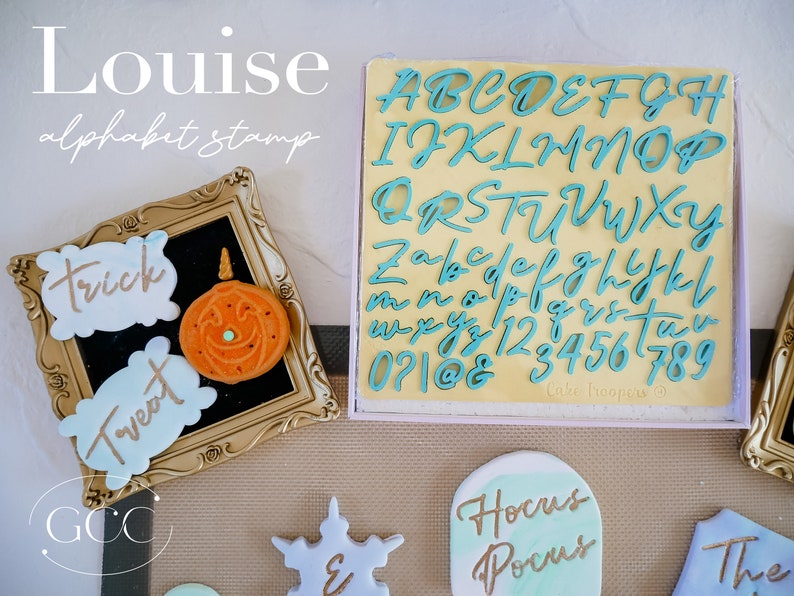 Louise
alphabet stamp
ABCDEFGH
IJKLMNOP
QRSTUVWXY
Zabcdefghijkl
mnopqrstuv
wxyz123456789
0?!@&
Cake Troopers
Trick
Treat
GCC
Hocus
Pocus
E
The